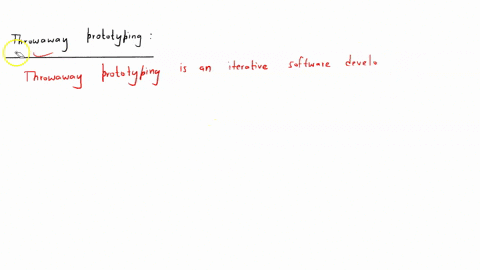 Throwaway prototyping :
Throwaway prototyping is an iterative software develo